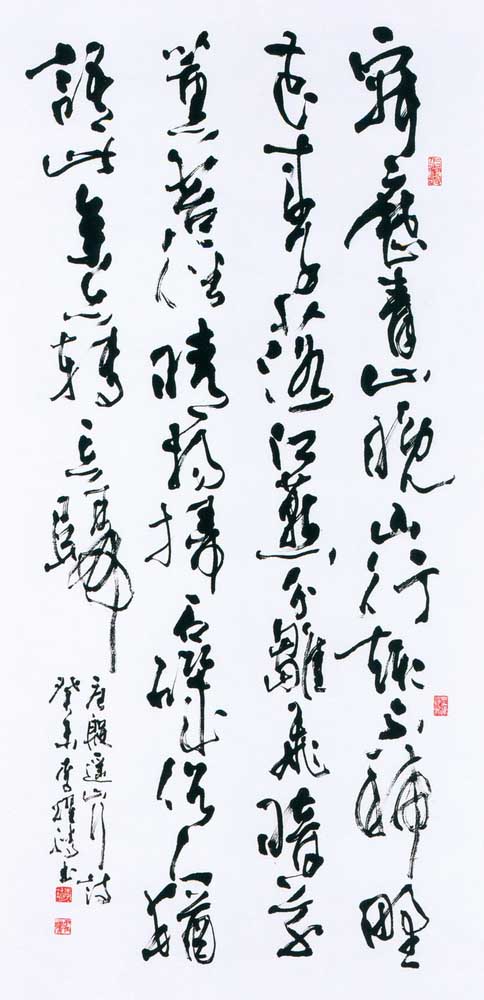 寂歷青山晚山行趣不稀野
花成子落江燕引雛飛暗草
薰苔徑晴楊掃石磯俗人猶
語此余亦轉忘歸
唐殷遥山行詩
癸未李耀書